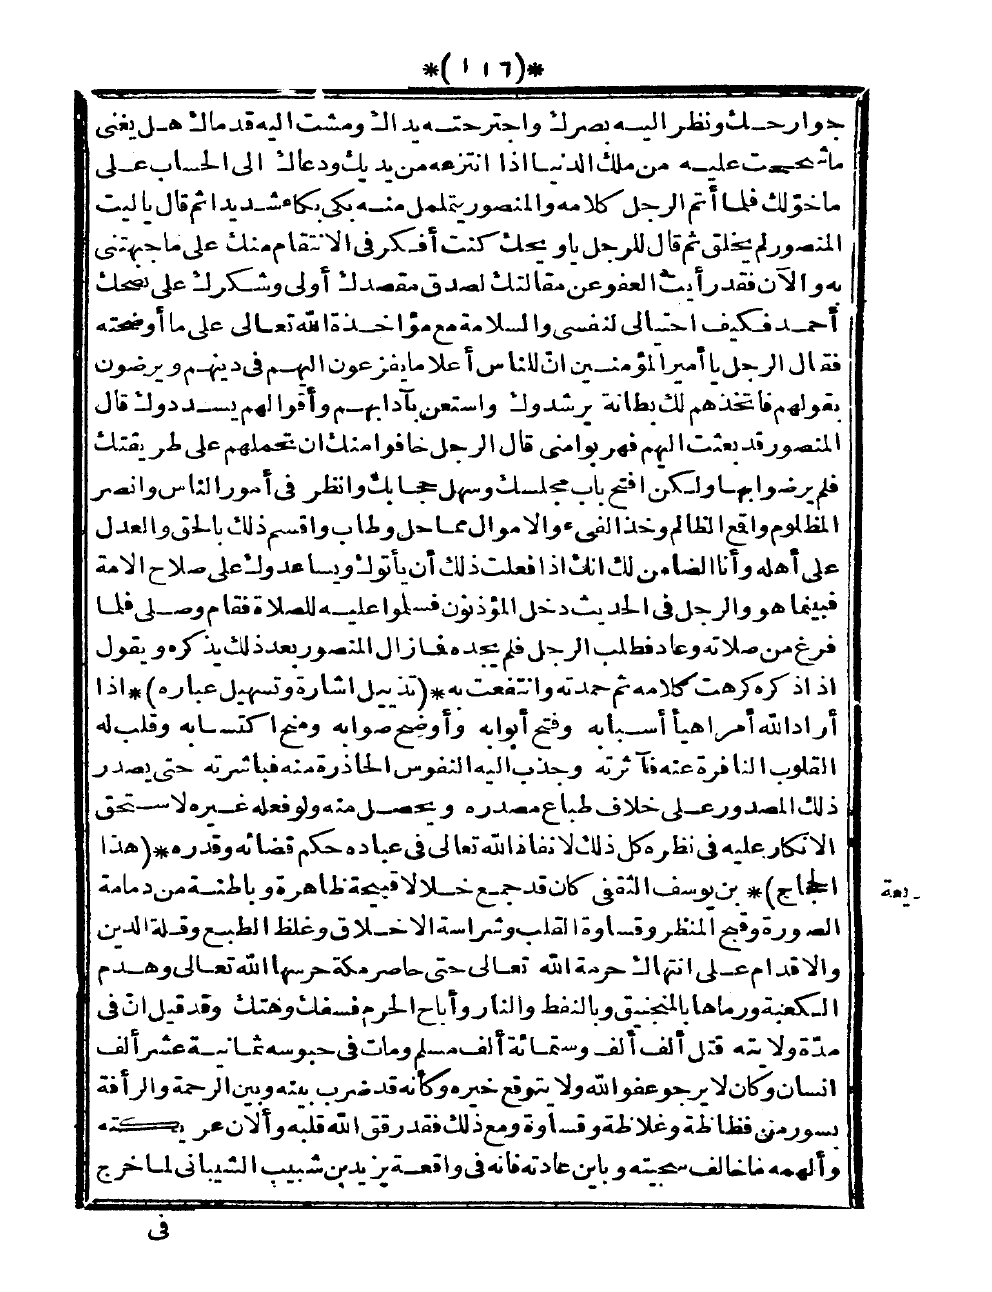 *(١١٦)*
جوارحك ونظر اليه بصرك واجترحته يداك ومشت اليه قدماك هل يغنى
ما شححت عليه من ملك الدنيا اذا انتزعه من يديك ودعاك الى الحساب على
ما خوّلك فلما أتم الرجل كلامه والمنصور يتململ منه بكى بكاء شديدا ثم قال يا ليت
المنصور لم يخلق ثم قال للرجل يا ويحك كنت أفكر فى الانتقام منك على ما جبهتنى
به والآن فقد رأيت العفو عن مقالتك لصدق مقصدك أولى وشكرك على نصحك
أحمد فكيف احتيالى لنفسى والسلامة مع مؤاخذة الله تعالى على ما أوضحته
فقال الرجل يا أمير المؤمنين انّ للناس أعلاما يفزعون اليهم فى دينهم ويرضون
بقولهم فاتخذهم لك بطانة يرشدوك واستعن بآدابهم وأقوالهم يسددوك قال
المنصور قد بعثت اليهم فهربوا منى قال الرجل خافوا منك ان تحملهم على طريقتك
فلم يرضوا بها ولكن افتح باب مجلسك وسهل حجابك وانظر فى أمور الناس وانصر
المظلوم واقع الظالم وخذ الفىء والاموال مما حل وطاب واقسم ذلك بالحق والعدل
على أهله وأنا الضامن لك انك اذا فعلت ذلك أن يأتوك ويساعدوك على صلاح الامة
فبينما هو والرجل فى الحديث دخل المؤذنون فسلموا عليه للصلاة فقام وصلى فلما
فرغ من صلاته وعاد فطلب الرجل فلم يجده فما زال المنصور بعد ذلك يذكره ويقول
اذا ذكره كرهت كلامه ثم حمدته وانتفعت به *(تذييل اشارة وتسهيل عباره)* اذا
أراد الله أمرا هيأ أسبابه وفتح أبوابه وأوضح صوابه ومنح اكتسابه وقلب له
القلوب النافرة عنه فآثرته وجذب اليه النفوس الحاذرة منه فباشرته حتى يصدر
ذلك المصدور على خلاف طباع مصدره ويحصل منه ولو فعله غيره لاستحق
الانكار عليه فى نظره كل ذلك لانفاذ الله تعالى فى عباده حكم قضائه وقدره *(هذا
الحجاج)* بن يوسف الثقفى كان قد جمع خلالا قبيحة ظاهرة وباطنة من دمامة
الصورة وقبح المنظر وقساوة القلب وشراسة الاخلاق وغلظ الطبع وقلة الدين
والاقدام على انتهاك حرمة الله تعالى حتى حاصر مكة حرسها الله تعالى وهدم
الكعبة ورماها بالمنجنيق وبالنفط والنار وأباح الحرم فسفك وهتك وقد قيل انّ فى
مدّة ولايته قتل ألف ألف وستمائة ألف مسلم ومات فى حبوسه ثمانية عشر ألف
انسان وكان لا يرجو عفو الله ولا يتوقع خيره وكأنه قد ضرب بينه وبين الرحمة والرأفة
بسور من فظاظة وغلاظة وقساوة ومع ذلك فقد رقق الله قلبه وألان عريكته
وألهمه ما خالف سجيته وباين عادته فانه فى واقعة يزيد بن شبيب الشيبانى لما خرج
فى